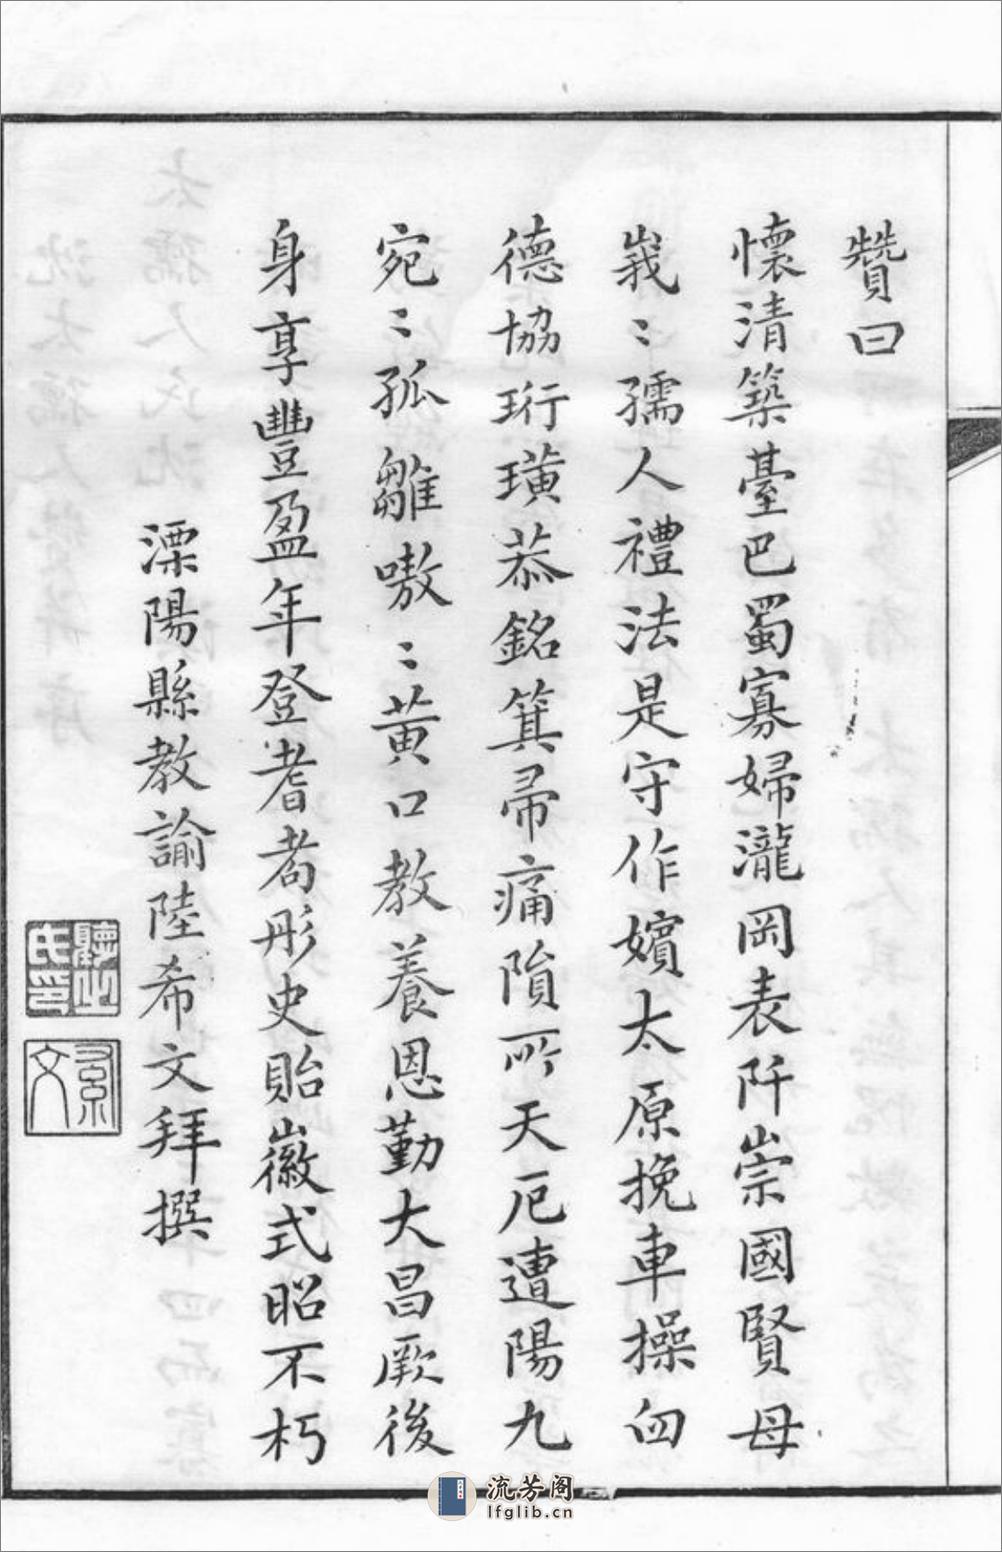 贊曰
懷清築臺巴蜀寡婦瀧岡表阡崇國賢母
峩〻孺人禮法是守作嬪太原挽車操臼
德協珩璜恭銘箕帚痛隕所天厄遭陽九
宛〻孤雛嗷〻黃口教養恩勤大昌厥後
身享豐盈年登耆耇彤史貽徽式昭不朽
溧陽縣教諭陸希文拜撰
聽之氏印
希文
流芳阁
lfglib.cn